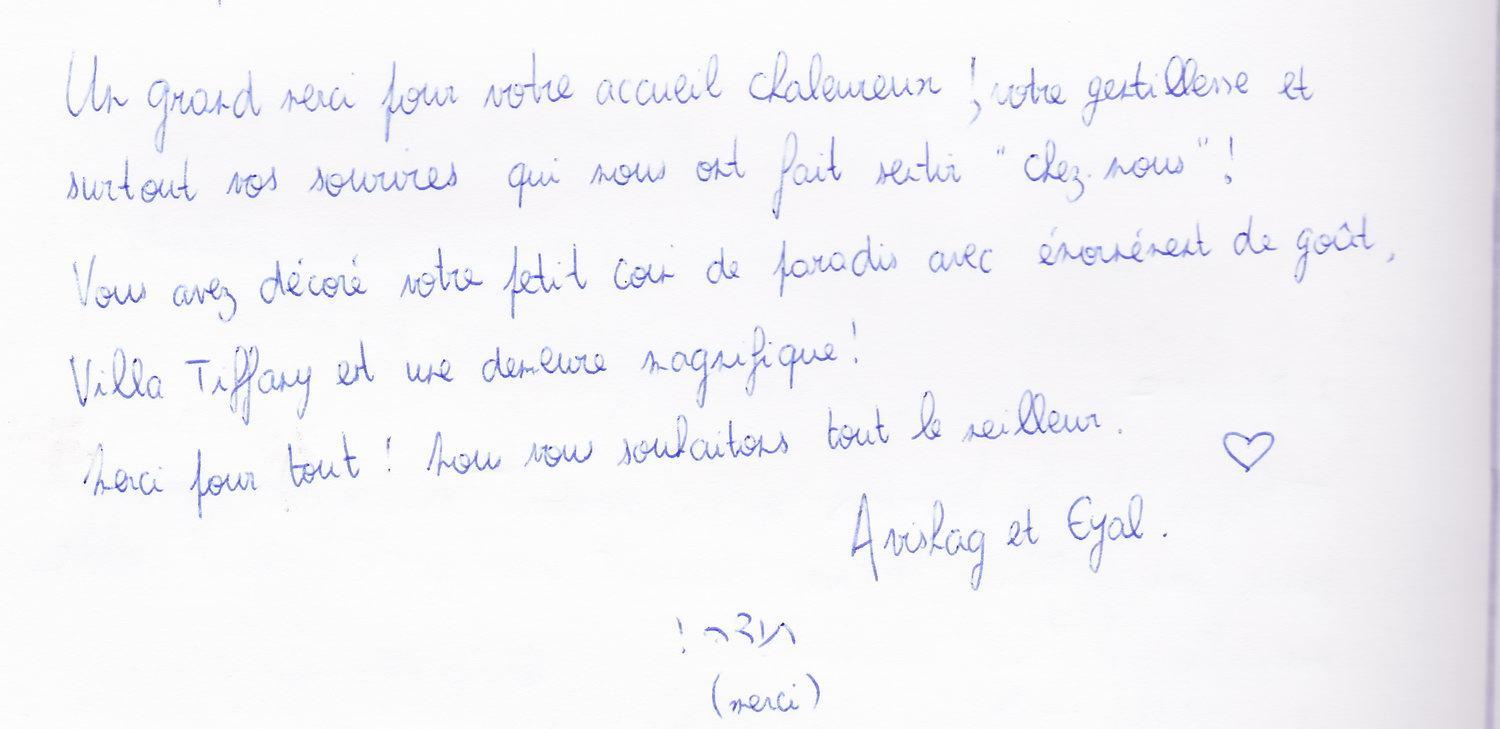 Un grand merci pour votre accueil chaleureux !, votre gentillesse et
surtout vos sourires qui nous ont fait sentir "chez-nous" !
Vous avez décoré votre petit coin de paradis avec énormément de goût,
Villa Tiffany est une demeure magnifique !
Merci pour tout ! Nous vous souhaitons tout le meilleur. ♡
Avishag et Eyal.
תודה !
(merci)